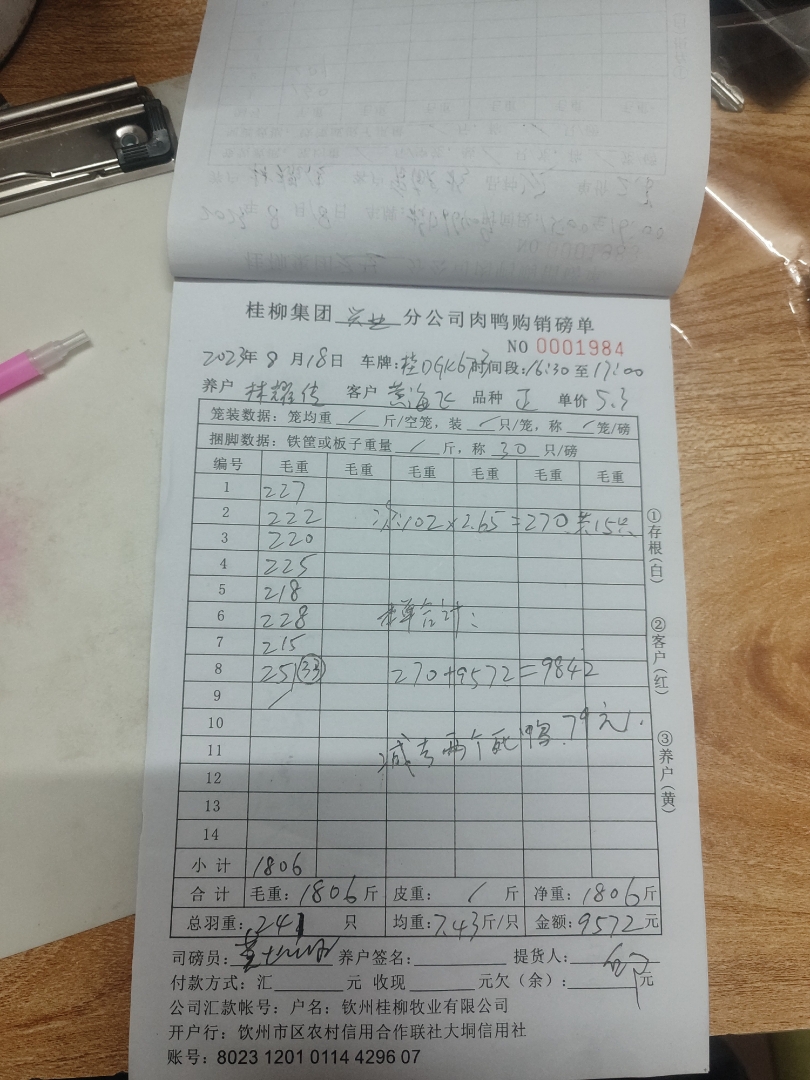 桂柳集团 兴业 分公司肉鸭购销磅单
NO 0001984
2023年 8 月 18日 车牌:桂DGK673 时间段:16:30 至 17:00
养户 林耀佳 客户 黄海飞 品种 正 单价 5.3
笼装数据:笼均重 / 斤/空笼,装 / 只/笼,称 / 笼/磅
捆脚数据:铁筐或板子重量 / 斤,称 30 只/磅
编号 毛重 毛重 毛重 毛重 毛重 毛重
1 227
2 222 102×2.65=270 共15只
3 220
4 225
5 218
6 228 合计:
7 215
8 251 (33) 270+9572=9842
9
10
11 减去两个死鸭.79元.
12
13
14
小 计 1806
合 计 毛重:1806斤 皮重: / 斤 净重:1806斤
总羽重:241 只 均重:7.43斤/只 金额:9572元
司磅员: 养户签名: 提货人:
付款方式:汇 元 收现 元欠(余): 元
公司汇款帐号:户名:钦州桂柳牧业有限公司
开户行:钦州市区农村信用合作联社大垌信用社
账号:8023 1201 0114 4296 07
①存根(白)
②客户(红)
③养户(黄)